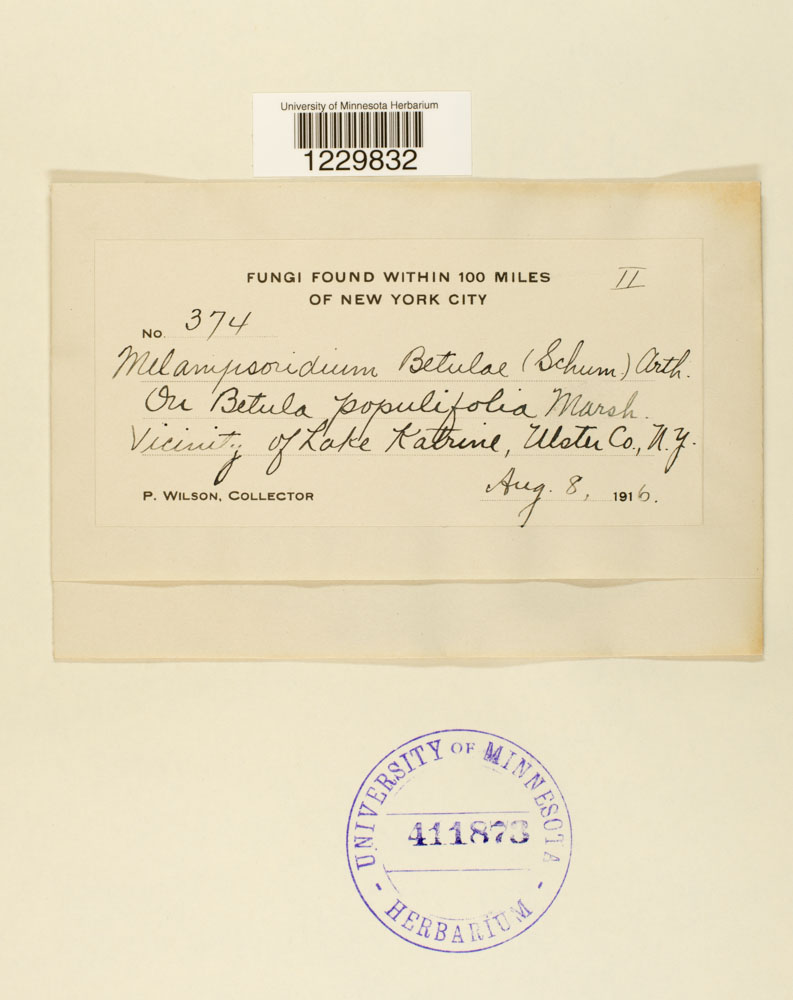 University of Minnesota Herbarium
1229832
FUNGI FOUND WITHIN 100 MILES
OF NEW YORK CITY
II
No. 374
Melampsoridium Betulae (Schum.) Arth.
On Betula populifolia Marsh.
Vicinity of Lake Katrine, Ulster Co., N.Y.
Aug. 8, 1916.
P. WILSON, COLLECTOR
UNIVERSITY OF MINNESOTA
411873
- HERBARIUM -